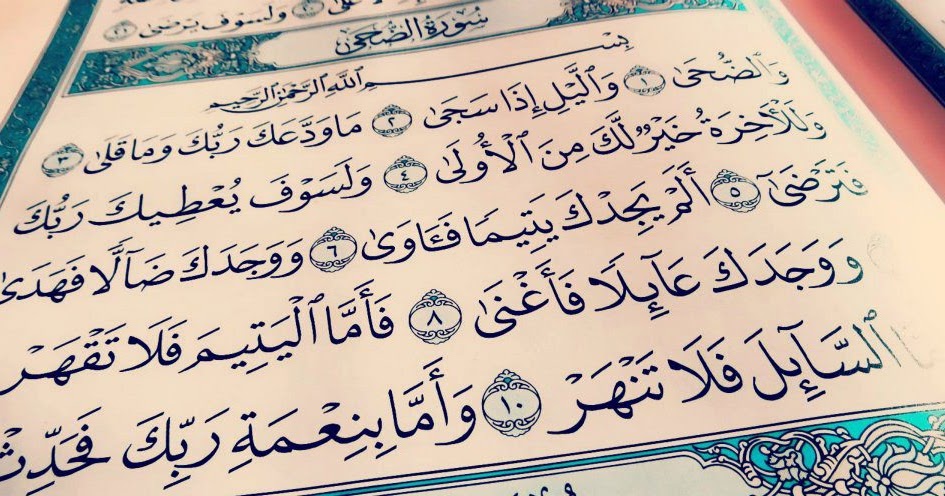 ولسوف يرضى ٢١
سورة الضحى
بِسْمِ ٱللَّهِ ٱلرَّحْمَٰنِ ٱلرَّحِيمِ
وَٱلضُّحَىٰ ١ وَٱلَّيْلِ إِذَا سَجَىٰ ٢ مَا وَدَّعَكَ رَبُّكَ وَمَا قَلَىٰ ٣
وَلَلْءَاخِرَةُ خَيْرٌ لَّكَ مِنَ ٱلْأُولَىٰ ٤ وَلَسَوْفَ يُعْطِيكَ رَبُّكَ
فَتَرْضَىٰٓ ٥ أَلَمْ يَجِدْكَ يَتِيمًا فَـَٔاوَىٰ ٦ وَوَجَدَكَ ضَآلًّا فَهَدَىٰ
وَوَجَدَكَ عَآئِلًا فَأَغْنَىٰ ٨ فَأَمَّا ٱلْيَتِيمَ فَلَا تَقْهَرْ
ٱلسَّآئِلَ فَلَا تَنْهَرْ ١٠ وَأَمَّا بِنِعْمَةِ رَبِّكَ فَحَدِّثْ